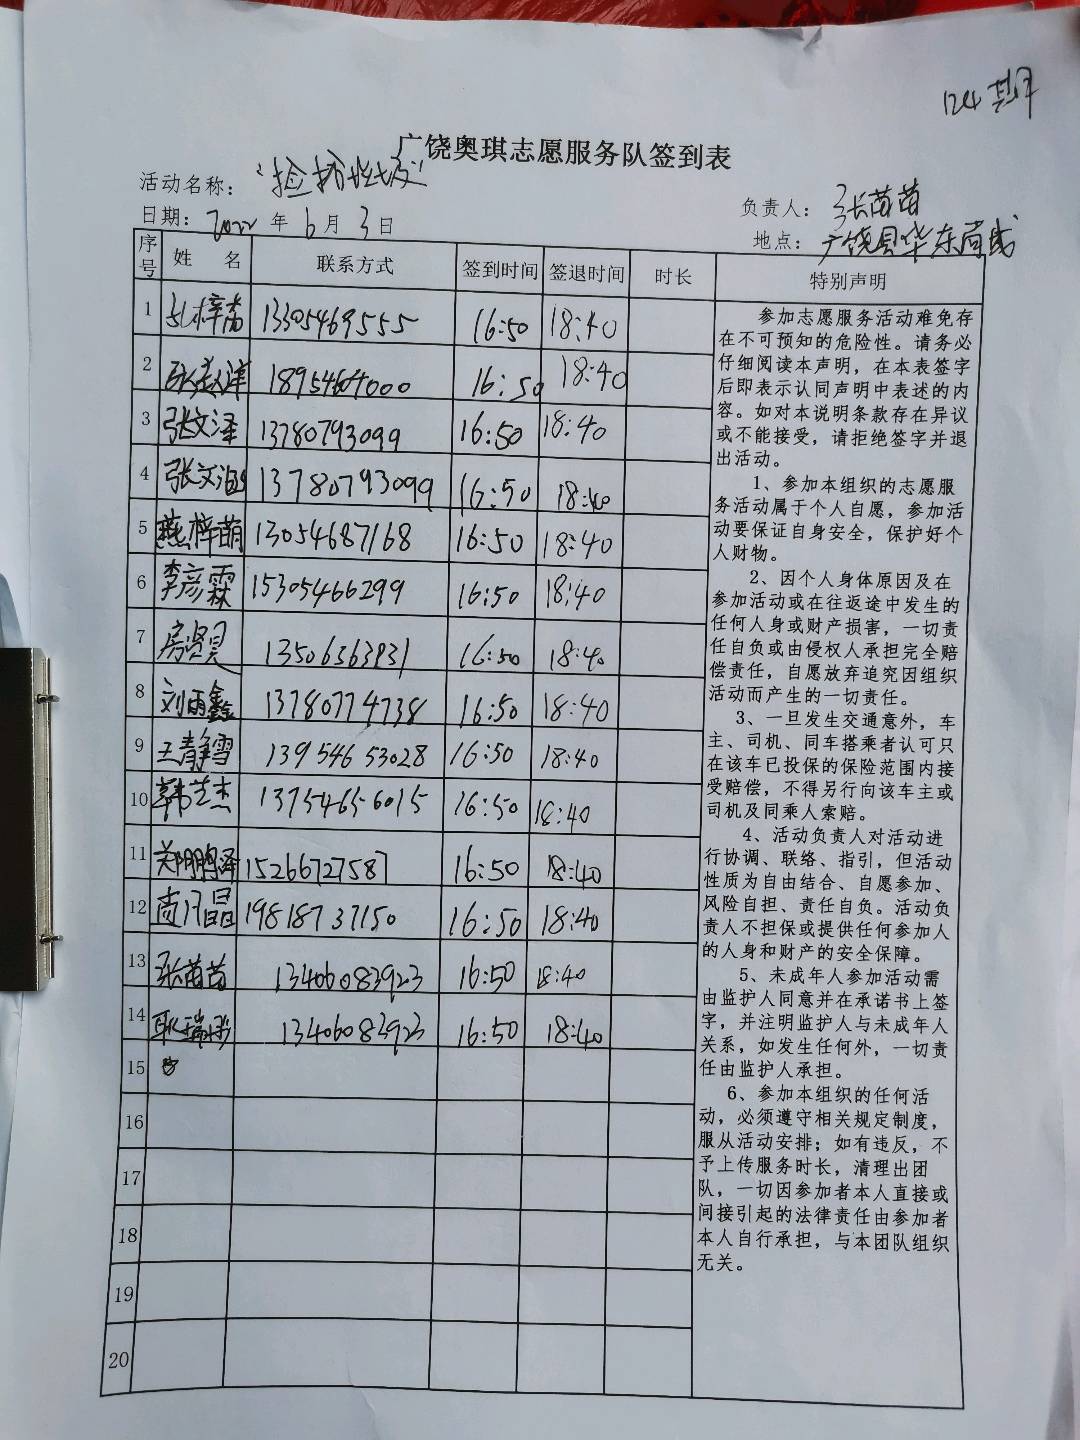 124期
广饶奥琪志愿服务队签到表
活动名称：“捡垃圾”
负责人：张苗苗
日期：2022年6月3日
地点：广饶县华东商城
序号 姓名 联系方式 签到时间 签退时间 时长 特别声明
1 13305469555 16:50 18:40
2 18954604000 16:50 18:40
3 张文泽 13780793099 16:50 18:40
4 张文 13780793099 16:50 18:40
5 燕梓萌 13054687168 16:50 18:40
6 李彦霖 15305466299 16:50 18:40
7 房贤昊 13506363931 16:50 18:40
8 刘雨鑫 13780774738 16:50 18:40
9 王静雪 13954653028 16:50 18:40
10 韩艺杰 13754656015 16:50 18:40
11 郑鹏泽 15266727587 16:50 18:40
12 19818737150 16:50 18:40
13 张苗苗 13406083923 16:50 18:40
14 13406083923 16:50 18:40
15
16
17
18
19
20
参加志愿服务活动难免存
在不可预知的危险性。请务必
仔细阅读本声明，在本表签字
后即表示认同声明中表述的内
容。如对本说明条款存在异议
或不能接受，请拒绝签字并退
出活动。
1、参加本组织的志愿服
务活动属于个人自愿，参加活
动要保证自身安全，保护好个
人财物。
2、因个人身体原因及在
参加活动或在往返途中发生的
任何人身或财产损害，一切责
任自负或由侵权人承担完全赔
偿责任，自愿放弃追究因组织
活动而产生的一切责任。
3、一旦发生交通意外，车
主、司机、同车搭乘者认可只
在该车已投保的保险范围内接
受赔偿，不得另行向该车主或
司机及同乘人索赔。
4、活动负责人对活动进
行协调、联络、指引，但活动
性质为自由结合、自愿参加、
风险自担、责任自负。活动负
责人不担保或提供任何参加人
的人身和财产的安全保障。
5、未成年人参加活动需
由监护人同意并在承诺书上签
字，并注明监护人与未成年人
关系，如发生任何外，一切责
任由监护人承担。
6、参加本组织的任何活
动，必须遵守相关规定制度，
服从活动安排；如有违反，不
予上传服务时长，清理出团
队，一切因参加者本人直接或
间接引起的法律责任由参加者
本人自行承担，与本团队组织
无关。